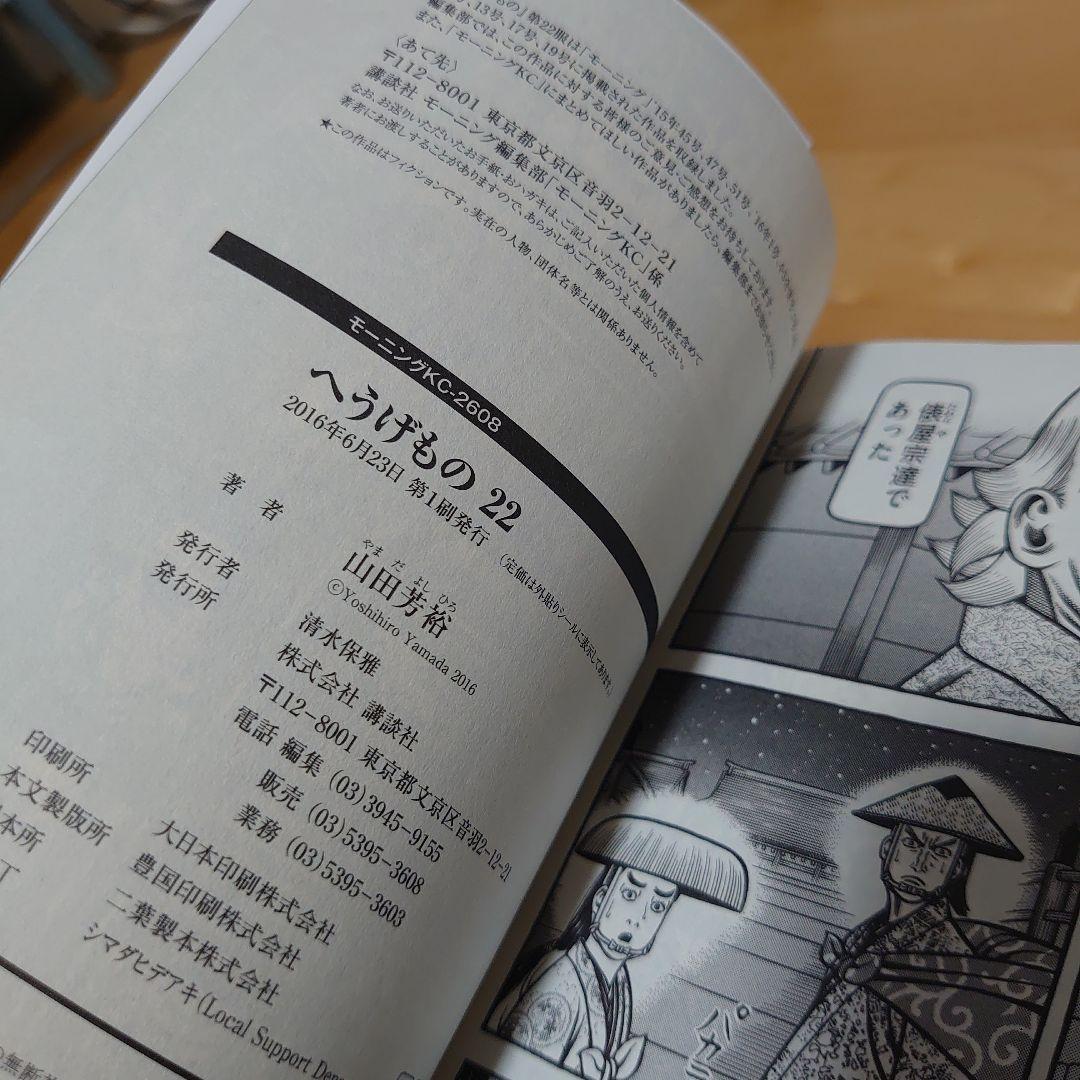 もの」第22服は「モーニング」'15年45号、47号、51号、'16年1号、
13号、17号、19号に掲載された作品を収録しました。
編集部では、この作品に対する皆様のご意見・ご感想をお待ちしております。
また、「モーニングKC」にまとめてほしい作品がありましたら、編集部まで
〈あて先〉
〒112-8001 東京都文京区音羽2-12-21
講談社 モーニング編集部「モーニングKC」係
なお、お送りいただいたお手紙・おハガキは、ご記入いただいた個人情報を含めて
著者にお渡しすることがありますので、あらかじめご了解のうえ、お送りください。
★この作品はフィクションです。実在の人物、団体名等とは関係ありません。
モーニングKC-2608
へうげもの 22
2016年6月23日 第1刷発行
(定価は外貼りシールに表示してあります。)
著者 山田芳裕
やま だ よし ひろ
©Yoshihiro Yamada 2016
発行者 清水保雅
発行所 株式会社 講談社
〒112-8001 東京都文京区音羽2-12-21
電話 編集 (03)3945-9155
販売 (03)5395-3608
業務 (03)5395-3603
印刷所 大日本印刷株式会社
本文製版所 豊国印刷株式会社
本所 二葉製本株式会社
丁 シマダヒデアキ(Local Support Depa
無断
俵屋宗達で
あった
パカ